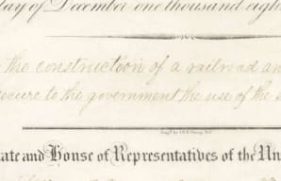 day of December one thousand eigh
the construction of a railroad an
secure to the government the use of the s
ate and House of Representatives of the Un